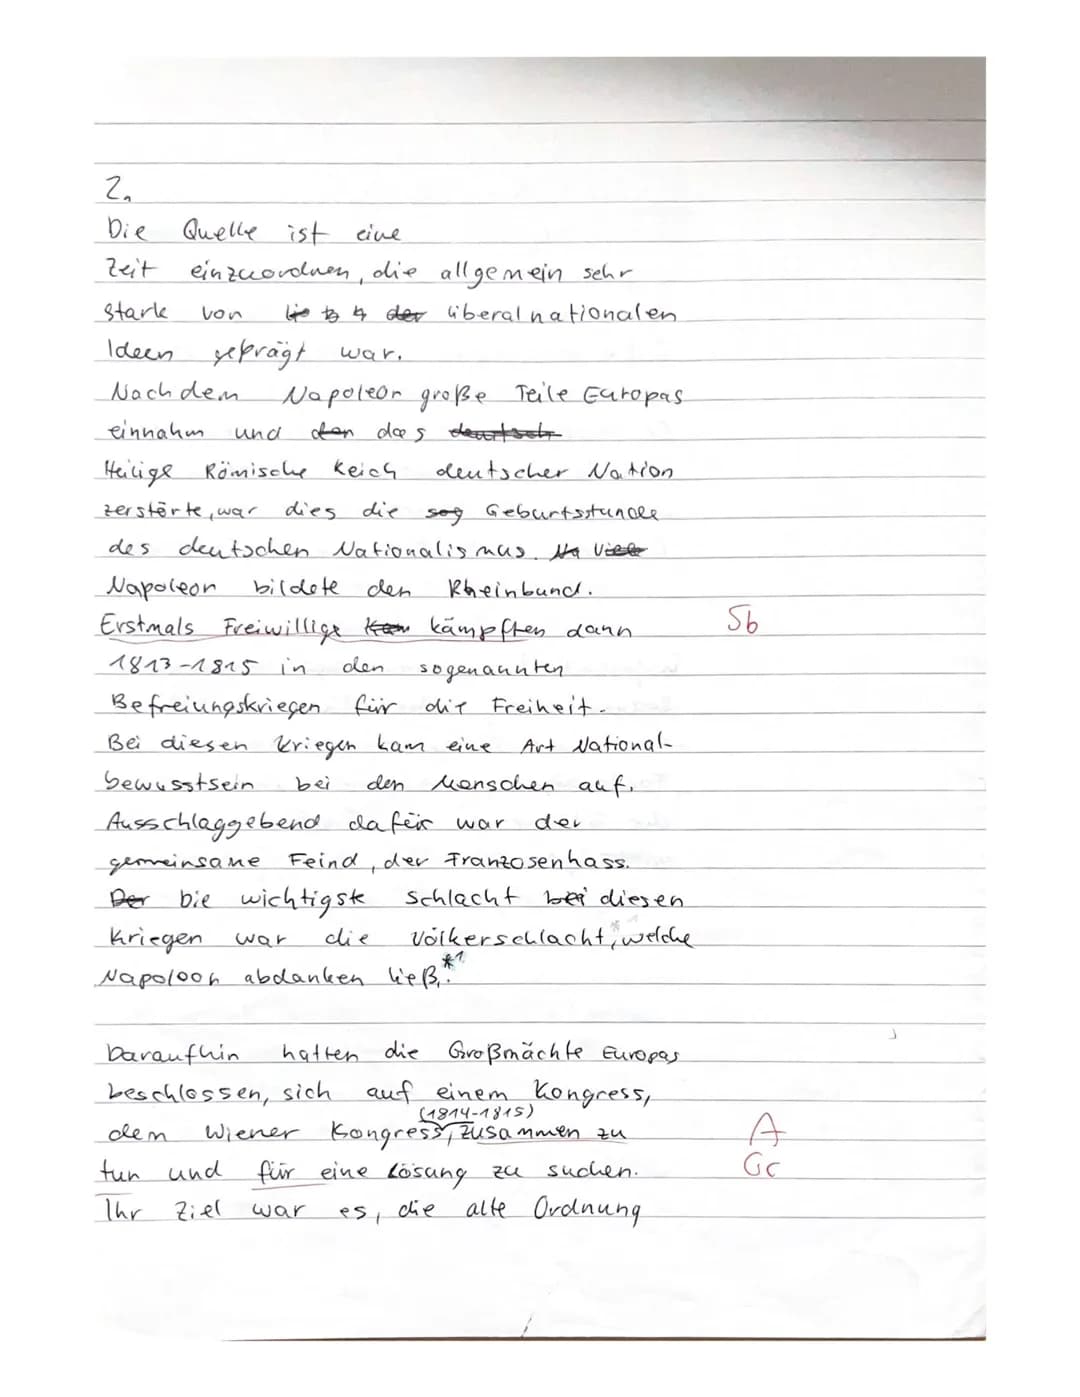 2.
Die Quelle ist eine
Zeit einzuordnen, die allgemein sehr
stark von der liberalnationalen
Ideen geprägt war.
Nachdem Napoleon große Teile Europas
einnahm und das
Heilige Römische Reich deutscher Nation
zerstörte, war dies die sog Geburtsstunde
des deutschen Nationalismus. Viele
Napoleon bildete den Rheinbund.
Erstmals Freiwillige kämpften dann Sb
1813-1815 in den sogenannten
Befreiungskriegen für die Freiheit.
Bei diesen Kriegen kam eine Art National-
bewusstsein bei den Menschen auf.
Ausschlaggebend dafür war der
gemeinsame Feind, der Franzosenhass.
Der Die wichtigste Schlacht bei diesen
Kriegen war die Völkerschlacht, welche
Napoleon abdanken ließ. *1
Daraufhin hatten die Großmächte Europas
beschlossen, sich auf einem Kongress,
(1814-1815)
dem Wiener Kongress, zusammen zu A
tun und für eine Lösung zu suchen. Gc
Ihr Ziel war es, die alte Ordnung